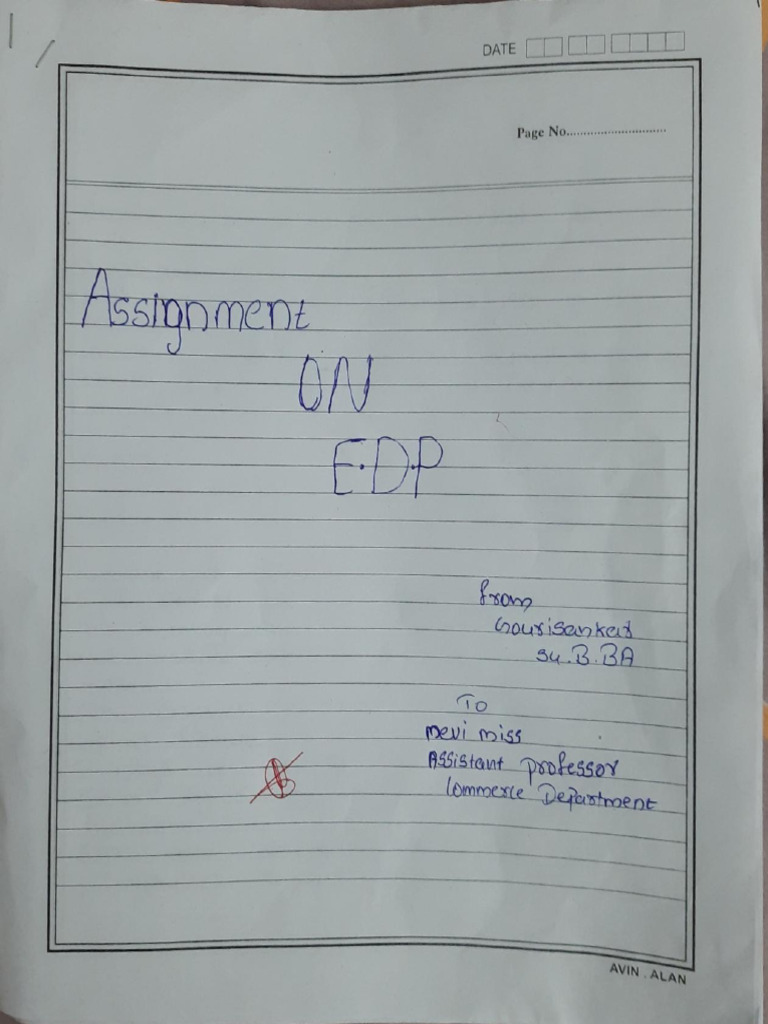 DATE
Page No..............................
Assignment
ON
E.D.P
from
Gourisankar
BBA
To
Devi miss
Assistant professor
Commerce Department
AVIN . ALAN